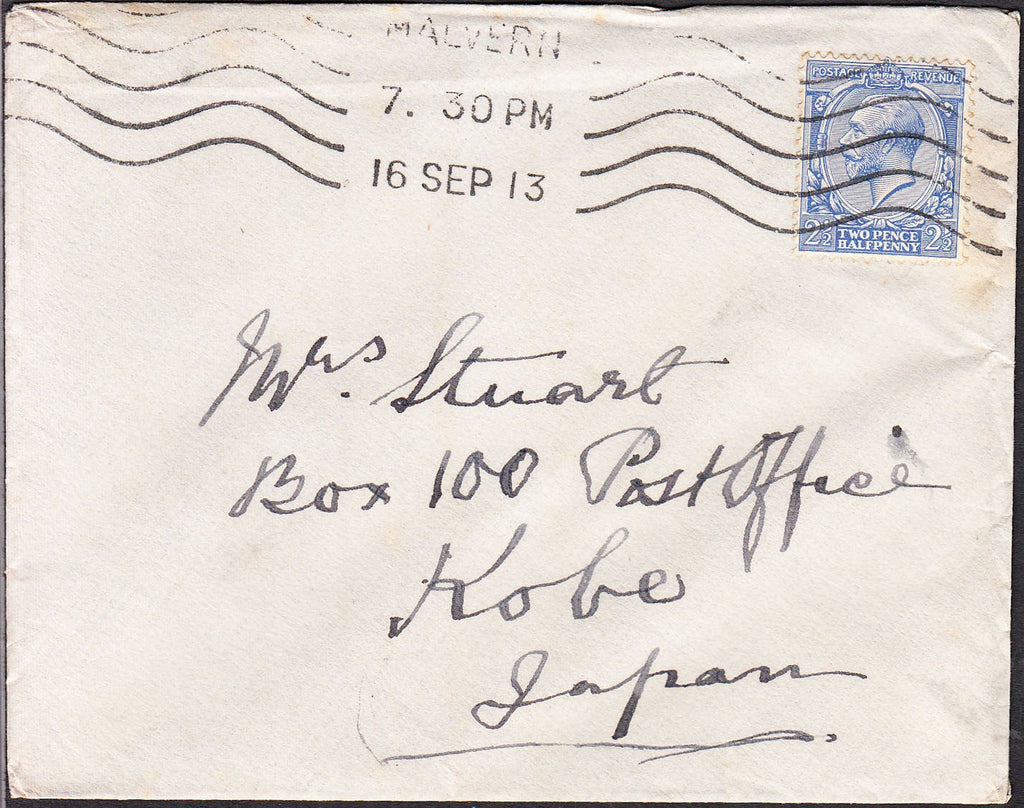 MALVERN
7. 30 PM
16 SEP 13
POSTAGE REVENUE
2½ TWO PENCE HALFPENNY 2½
Mrs. Stuart
Box 100 Post Office
Kobe
Japan